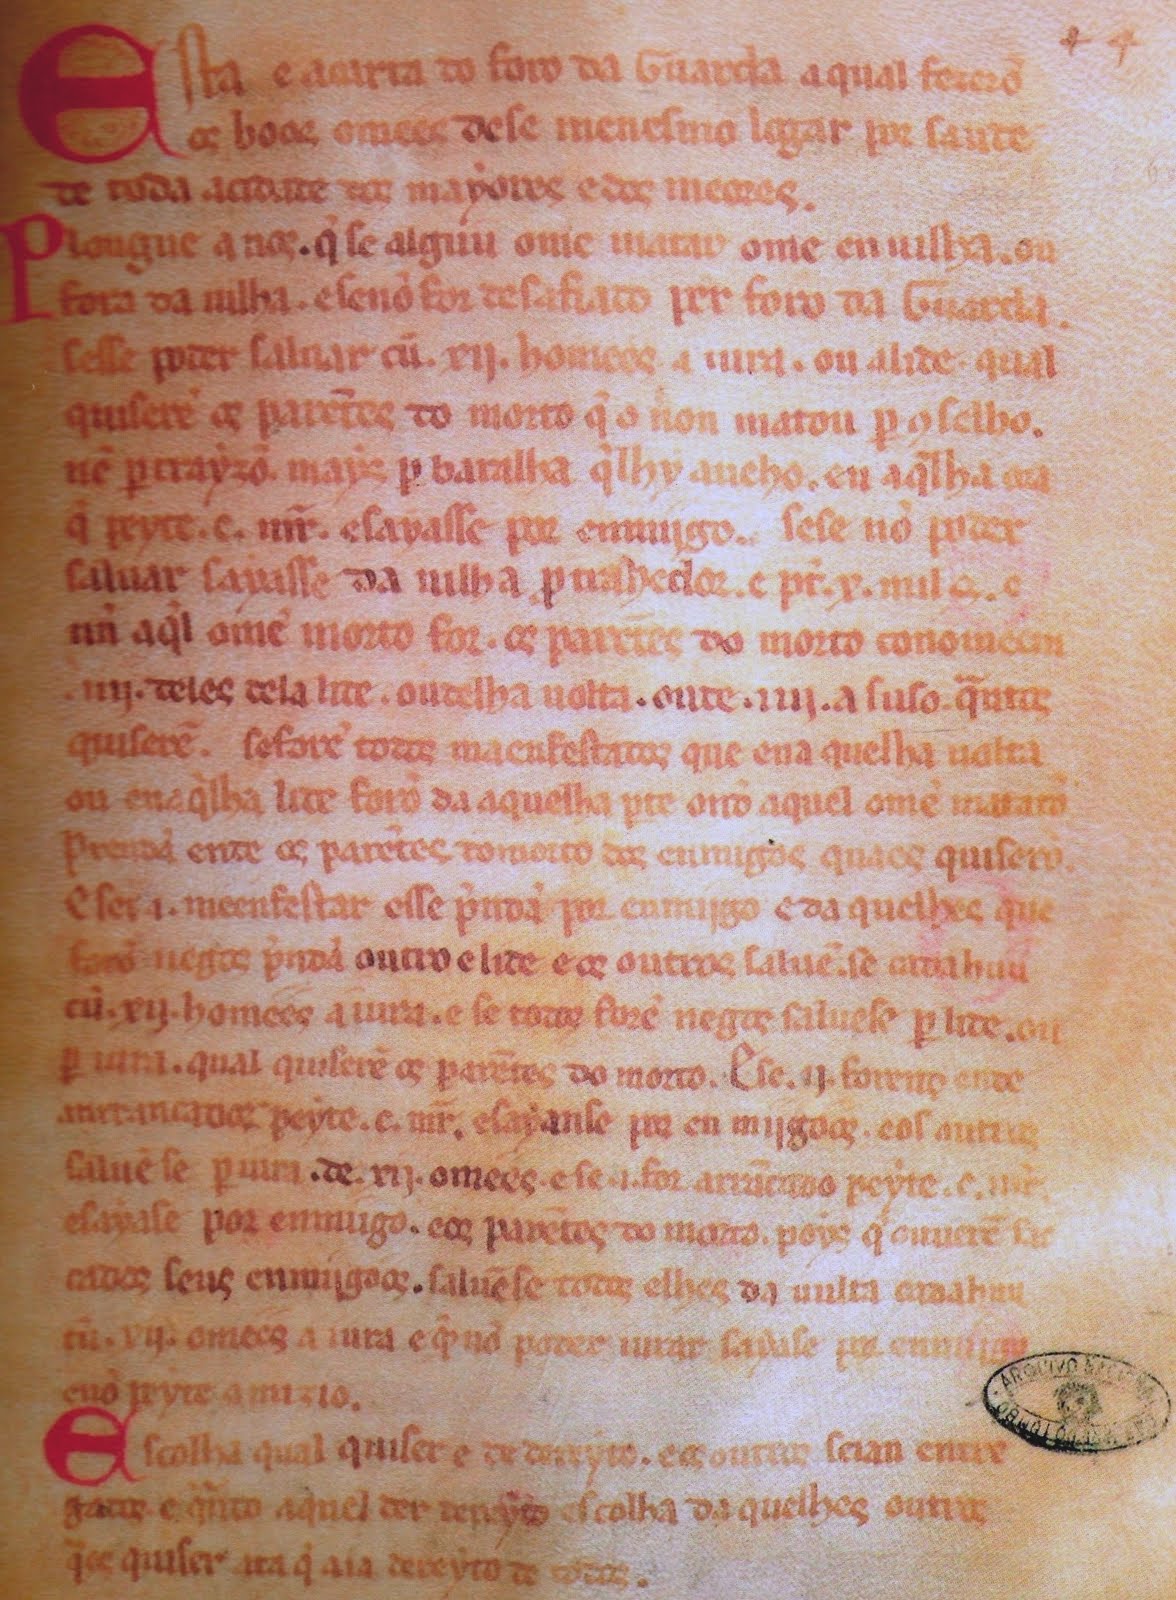 Esta e acarta do foro da Guarda aqual fezerõ
os boos omees dese meuesmo logar por saude
de toda acidade dos mayores e dos meores.
Plougue a nos. q̃ se alguu ome matar ome en uilha. ou
fora da uilha. e senõ for desafiado per foro da Guarda.
sesse poder saluar cũ. xij. homees a iura. ou alide qual
quiserẽ os parẽtes do morto q̃ o non matou ꝑ ꝯselho.
nẽ ꝑ trayzõ. mays ꝑ baralha q̃lhy aueho. en aq̃lha ora
q̃ peyte. c. mr̃. esayasse por enmijgo. sese nõ poder
saluar sayasse da uilha ꝑ e pr̃. x. mil e. c
mr̃ aq̃l omẽ morto for. os parẽtes do morto
. iiij. deles dela lide. oudelha uolta. oude. iiij. a suso. q̃ntos
quiserẽ. seforẽ todos maenfestados que ena quelha uolta
ou enaq̃lha lide forõ da aquelha ꝑte onõ aquel omẽ matarõ
Prendã ende os parẽtes domorto dos enmigos quaes quiserẽ.
E se. i. meenfestar esse p̃ndã por enmijgo e da quelhes que
forẽ negos p̃ndã outro e lide e os outros saluẽ.se cadahuu
cũ. xij. homees a iura. e se todos forẽ negos saluese ꝑ lide. ou
ꝑ iura. qual quiserẽ os parẽtes do morto. E se. ij. forenç ende
arrancados peyte. c. mr̃. esayanse por en mijgoos. eos outros
saluẽ se ꝑ iura. de. xij. omees. e se. i. for arrãcado peyte. c. mr̃.
esayase por enmijgo. eos parẽtes do morto. poys q̃ ouuerẽ sa
cados seus enmijgos. saluẽse todos elhes da uulta cadahuu
cũ. xij. omees a iura e q̃ nõ poder iurar sayase por enmijgo
enõ peyte omizio.
Escolha qual quiser e de dereyto. eos outros seian entre
gados. e q̃ndo aquel der dereyto escolha da quelhes outros
q̃es quiser ata q̃ aia dereyto de todos.
ARQUIVO NACIONAL DA TORRE DO TOMBO